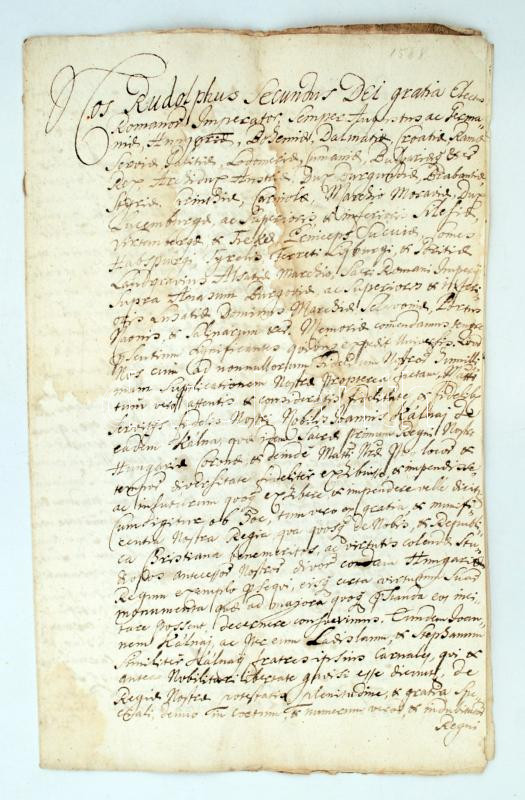 1588
Nos Rudolphus Secundus Dei gratia Electus
Romanor Imperator Semper Augustus ac Germa-
niæ, Hungariæ, Bohemiæ, Dalmatiæ Croatiæ Ramæ
Serviæ Galitiæ, Lodomeriæ, Cumaniæ, Bulgariæq &c
Rex Archidux Austriæ, Dux Burgundiæ, Brabantiæ
Styriæ, Carniolæ, Marchio Moraviæ, Dux
Luxemburgæ ac Superioris & inferioris Silesiæ,
Virtembergæ & Tekæ Princeps Sueviæ, Comes
Habspurgi, Tyrolis Ferreti Kyburgi, & Goritiæ
Landgravius Alsatiæ Marchio Sacri Romani Imperij
Supra Anasum Burgoviæ ac Superioris & inferi-
oris Lusatiæ Dominus Marchiæ Sclavoniæ, Portus
Naonis, & Salinarum &c. Memoriæ commendamus tenore
pñtium significantes quibus expedit Universis. Quod
Nos cum ad nonnullorum Fidelium Nostror humilli-
mam supplicationem Nostræ propterea factam, Matti
tum vero attentis & consideratis fidelitate, & fidelib
servitijs fidelis Nostri Nobilis Joannis Kálnaj de
eadem Kálna, quæ idem Sacræ primum Regni Nostri
Hungariæ Coronæ & deinde Matti Nræ locor &
tempor diversitate fideliter exhibuit, & impendit
ac in futurum quoq exhibere & impendere velle dicit,
Cum igitur ob hoc, tum vero ex gratia, & munifi-
centia Nostra Regia qua quosq de Nobis, & Republi-
ca Christiana benemeritos, ac virtutis colendæ stu-
diosos antecessor Nostror divor condam Hungariæ
Regum exemplo prosequi, eisq certa virtutum suar
monumenta quæ ad majora quoq præstanda eos inci-
tare possent, decernere consuevimus. Eundem Joan-
nem Kálnaj, ac per eum Ladislaum, & Stephanum
similiter Kálnaj fratres ipsius carnales, qui &
antea Nobilitari libertate gavisi esse dicuntur, de
Regiæ Nostræ potestatis plenitudine, & gratia spe-
ciali, denuo in coetum, & numerum veror, & indubitator
Regni